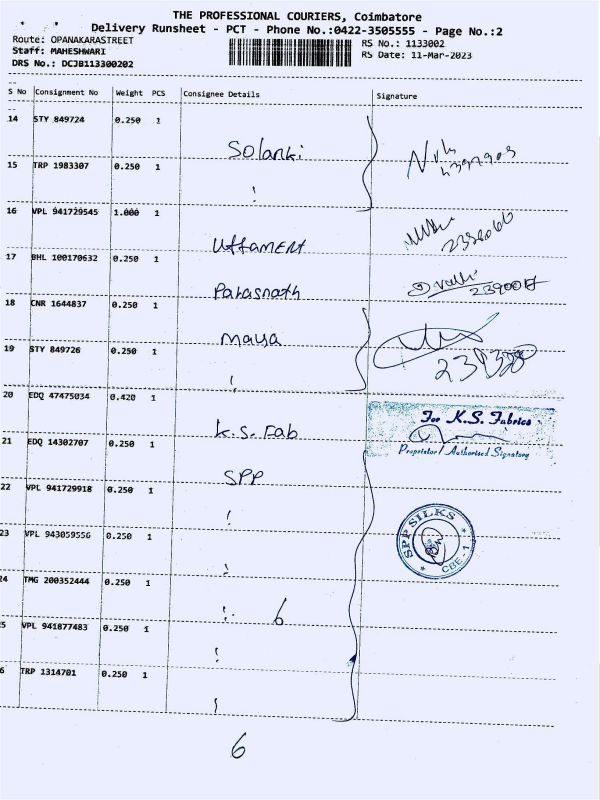 THE PROFESSIONAL COURIERS, Coimbatore
Delivery Runsheet - PCT - Phone No.:0422-3505555 - Page No.:2
Route: OPANAKARASTREET RS No.: 1133002
Staff: MAHESHWARI RS Date: 11-Mar-2023
DRS No.: DCJB113300202
S No Consignment No Weight PCS Consignee Details Signature
14 STY 849724 0.250 1
Solanki
15 TRP 1983307 0.250 1
16 VPL 941729545 1.000 1
Uttament
17 BHL 100170632 0.250 1
Parasnath
18 CNR 1644837 0.250 1
Maya
19 STY 849726 0.250 1
20 EDQ 47475034 0.420 1
K.S. Fab
For K.S. Fabrics
Proprietor / Authorised Signatory
21 EDQ 14302707 0.250 1
SPP
22 VPL 941729918 0.250 1
SPP SILKS
CBE-1
23 VPL 943059556 0.250 1
24 TMG 200352444 0.250 1
6
5 VPL 941877483 0.250 1
6 TRP 1314701 0.250 1
6